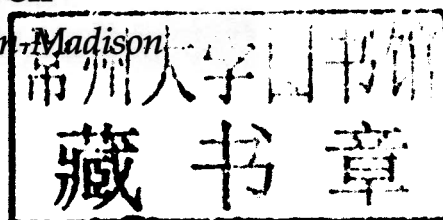 n-Madison
常州大学图书馆
藏书章